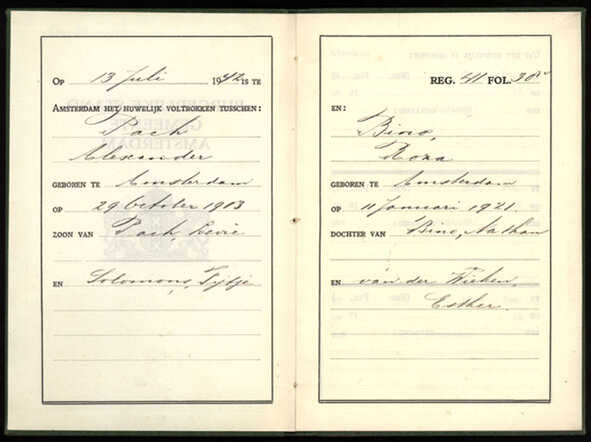 Op 13 Juli 1942 is te
Amsterdam het huwelijk voltrokken tusschen:
Pach
Alexander
geboren te Amsterdam
op 29 October 1913
zoon van Pach, Levie
en Solomons, Tijtje
Reg. 41 Fol. 30
en:
Bino,
Roza
geboren te Amsterdam
op 11 Januari 1921.
dochter van Bino, Nathan
en van der Wieken,
Esther.